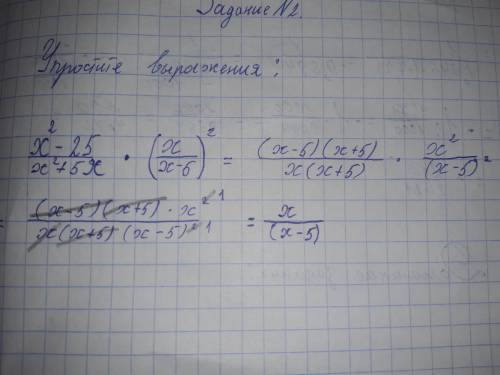 Задание №2.
Упростите выражения:
x² - 25 / x² + 5x · (x / x-5)² = (x-5)(x+5) / x(x+5) · x² / (x-5)²
= (x-5)(x+5) · x² ¹ / x(x+5)(x-5)² ¹ = x / (x-5)